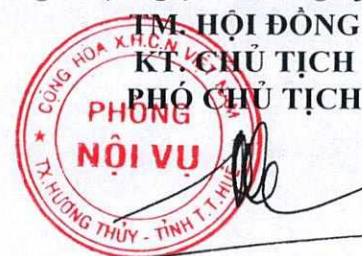 TM. HỘI ĐỒNG
KT. CHỦ TỊCH
PHÓ CHỦ TỊCH
CỘNG HÒA X.H.C.N VIỆT NAM
PHÒNG
NỘI VỤ
★ TX.HƯƠNG THỦY - TỈNH T.T.HUẾ